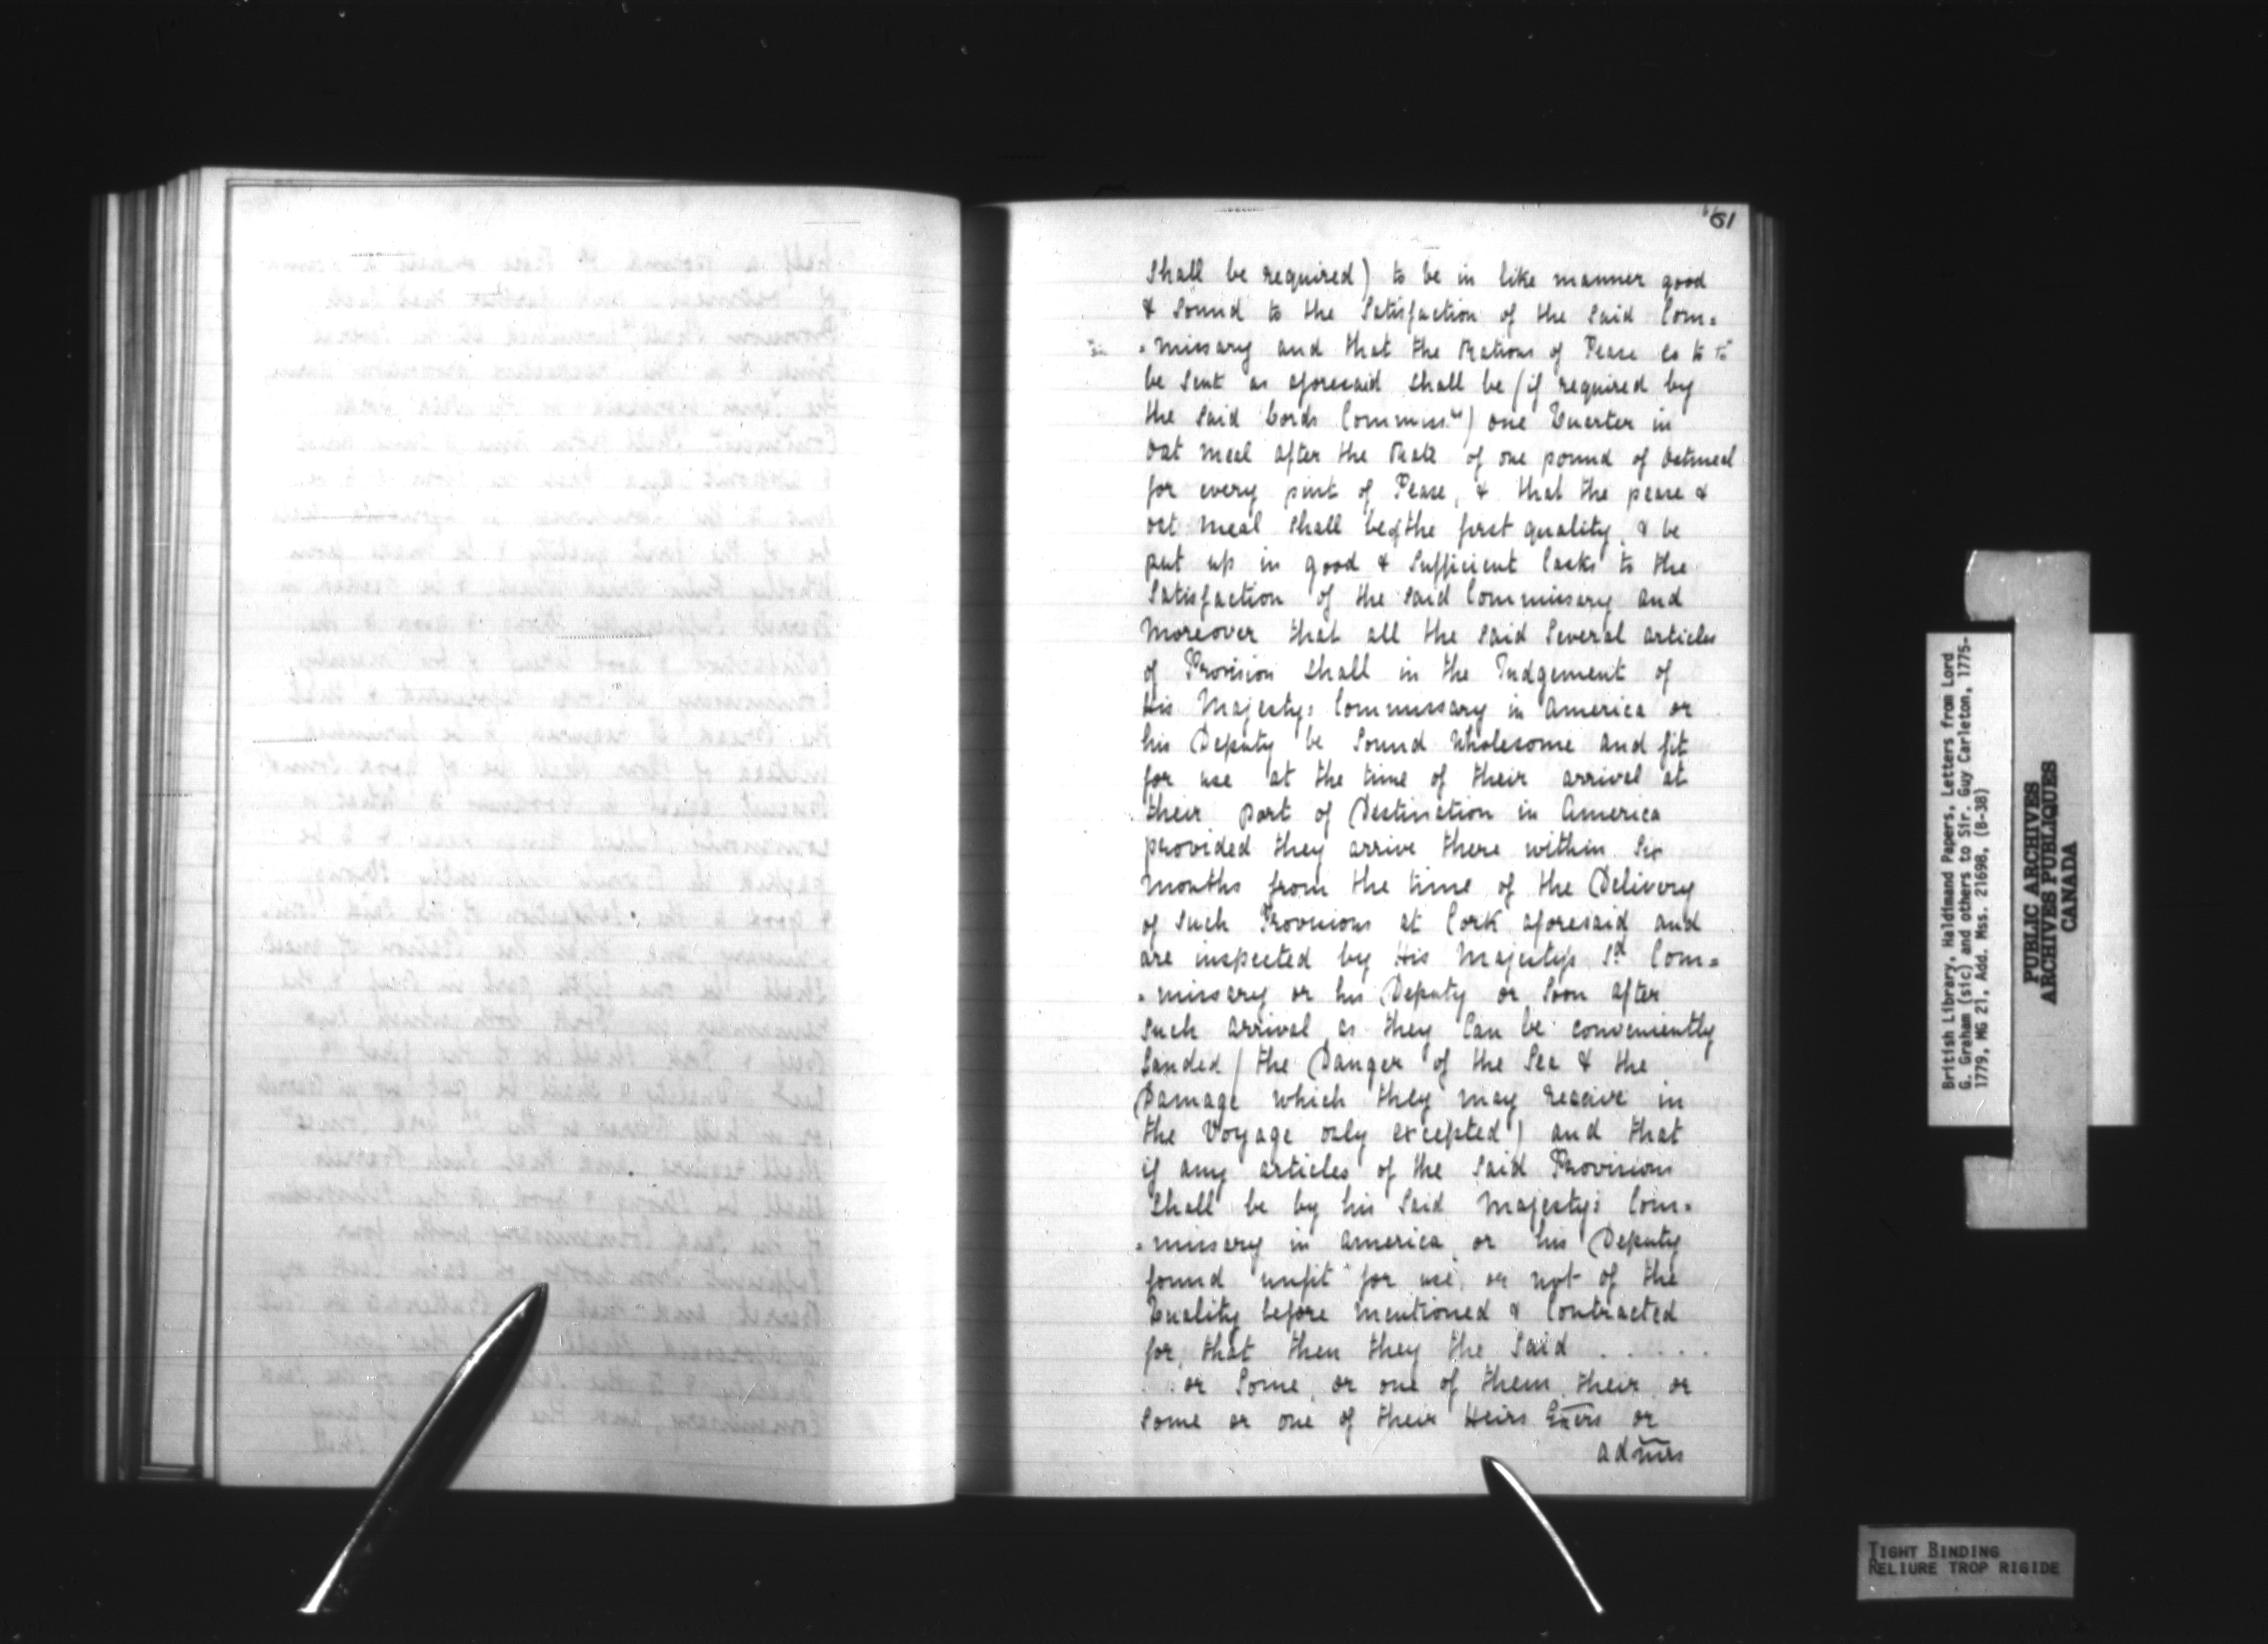 61
Shall be required) to be in like manner good
& Sound to the Satisfaction of the Said Com=
=missary and that the Rations of Pease so to
be Sent as aforesaid shall be (if required by
the said Lords Commiss.rs) one Quarter in
Oat meal after the Rate of one pound of Oatmeal
for every pint of Pease, & that the pease &
oat meal shall be of the first quality, & be
put up in good & Sufficient Casks to the
Satisfaction of the said Commissary and
Moreover that all the said Several articles
of Provision Shall in the Judgement of
His Majestys Commissary in America or
his Deputy be Sound Wholesome and fit
for use at the time of their arrival at
their port of Destination in America
provided they arrive there within Six
Months from the time of the Delivery
of Such Provisions at Cork aforesaid and
are inspected by His Majestys Sd Com=
=missary or his Deputy or Soon after
such arrival as they Can be conveniently
Landed (the Danger of the Sea & the
Damage which they may receive in
the Voyage only excepted) and that
if any articles of the said Provisions
Shall be by his Said Majestys Com=
=missary in America or his Deputy
found unfit for use, or not of the
Quality before mentioned & Contracted
for, that then they the Said . . . . .
. . or Some, or one of them, their, or
Some or one of their Heirs Exers or
admrs
British Library, Haldimand Papers, Letters from Lord
G. Graham (sic) and others to Sir. Guy Carleton, 1775-
1779, MG 21, Add. Mss. 21698, (B-38)
PUBLIC ARCHIVES
ARCHIVES PUBLIQUES
CANADA
TIGHT BINDING
RELIURE TROP RIGIDE